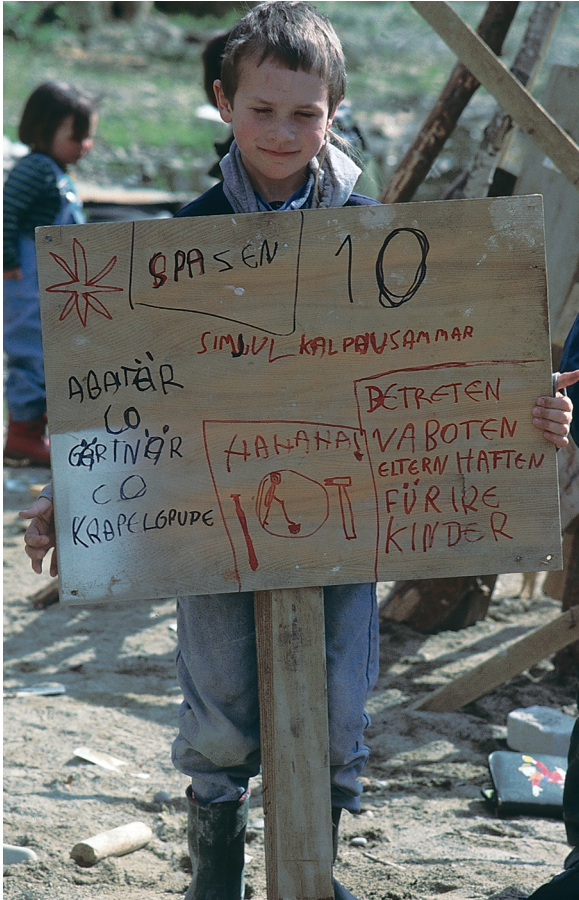 SPASEN
10
SIMSUL KALPAUSAMMAR
ABATÄR
CO
GÄRTNÄR
CO
KRAPELGRUDE
HAHAHA!
BETRETEN
VABOTEN
ELTERN HAFTEN
FÜR IRE
KINDER